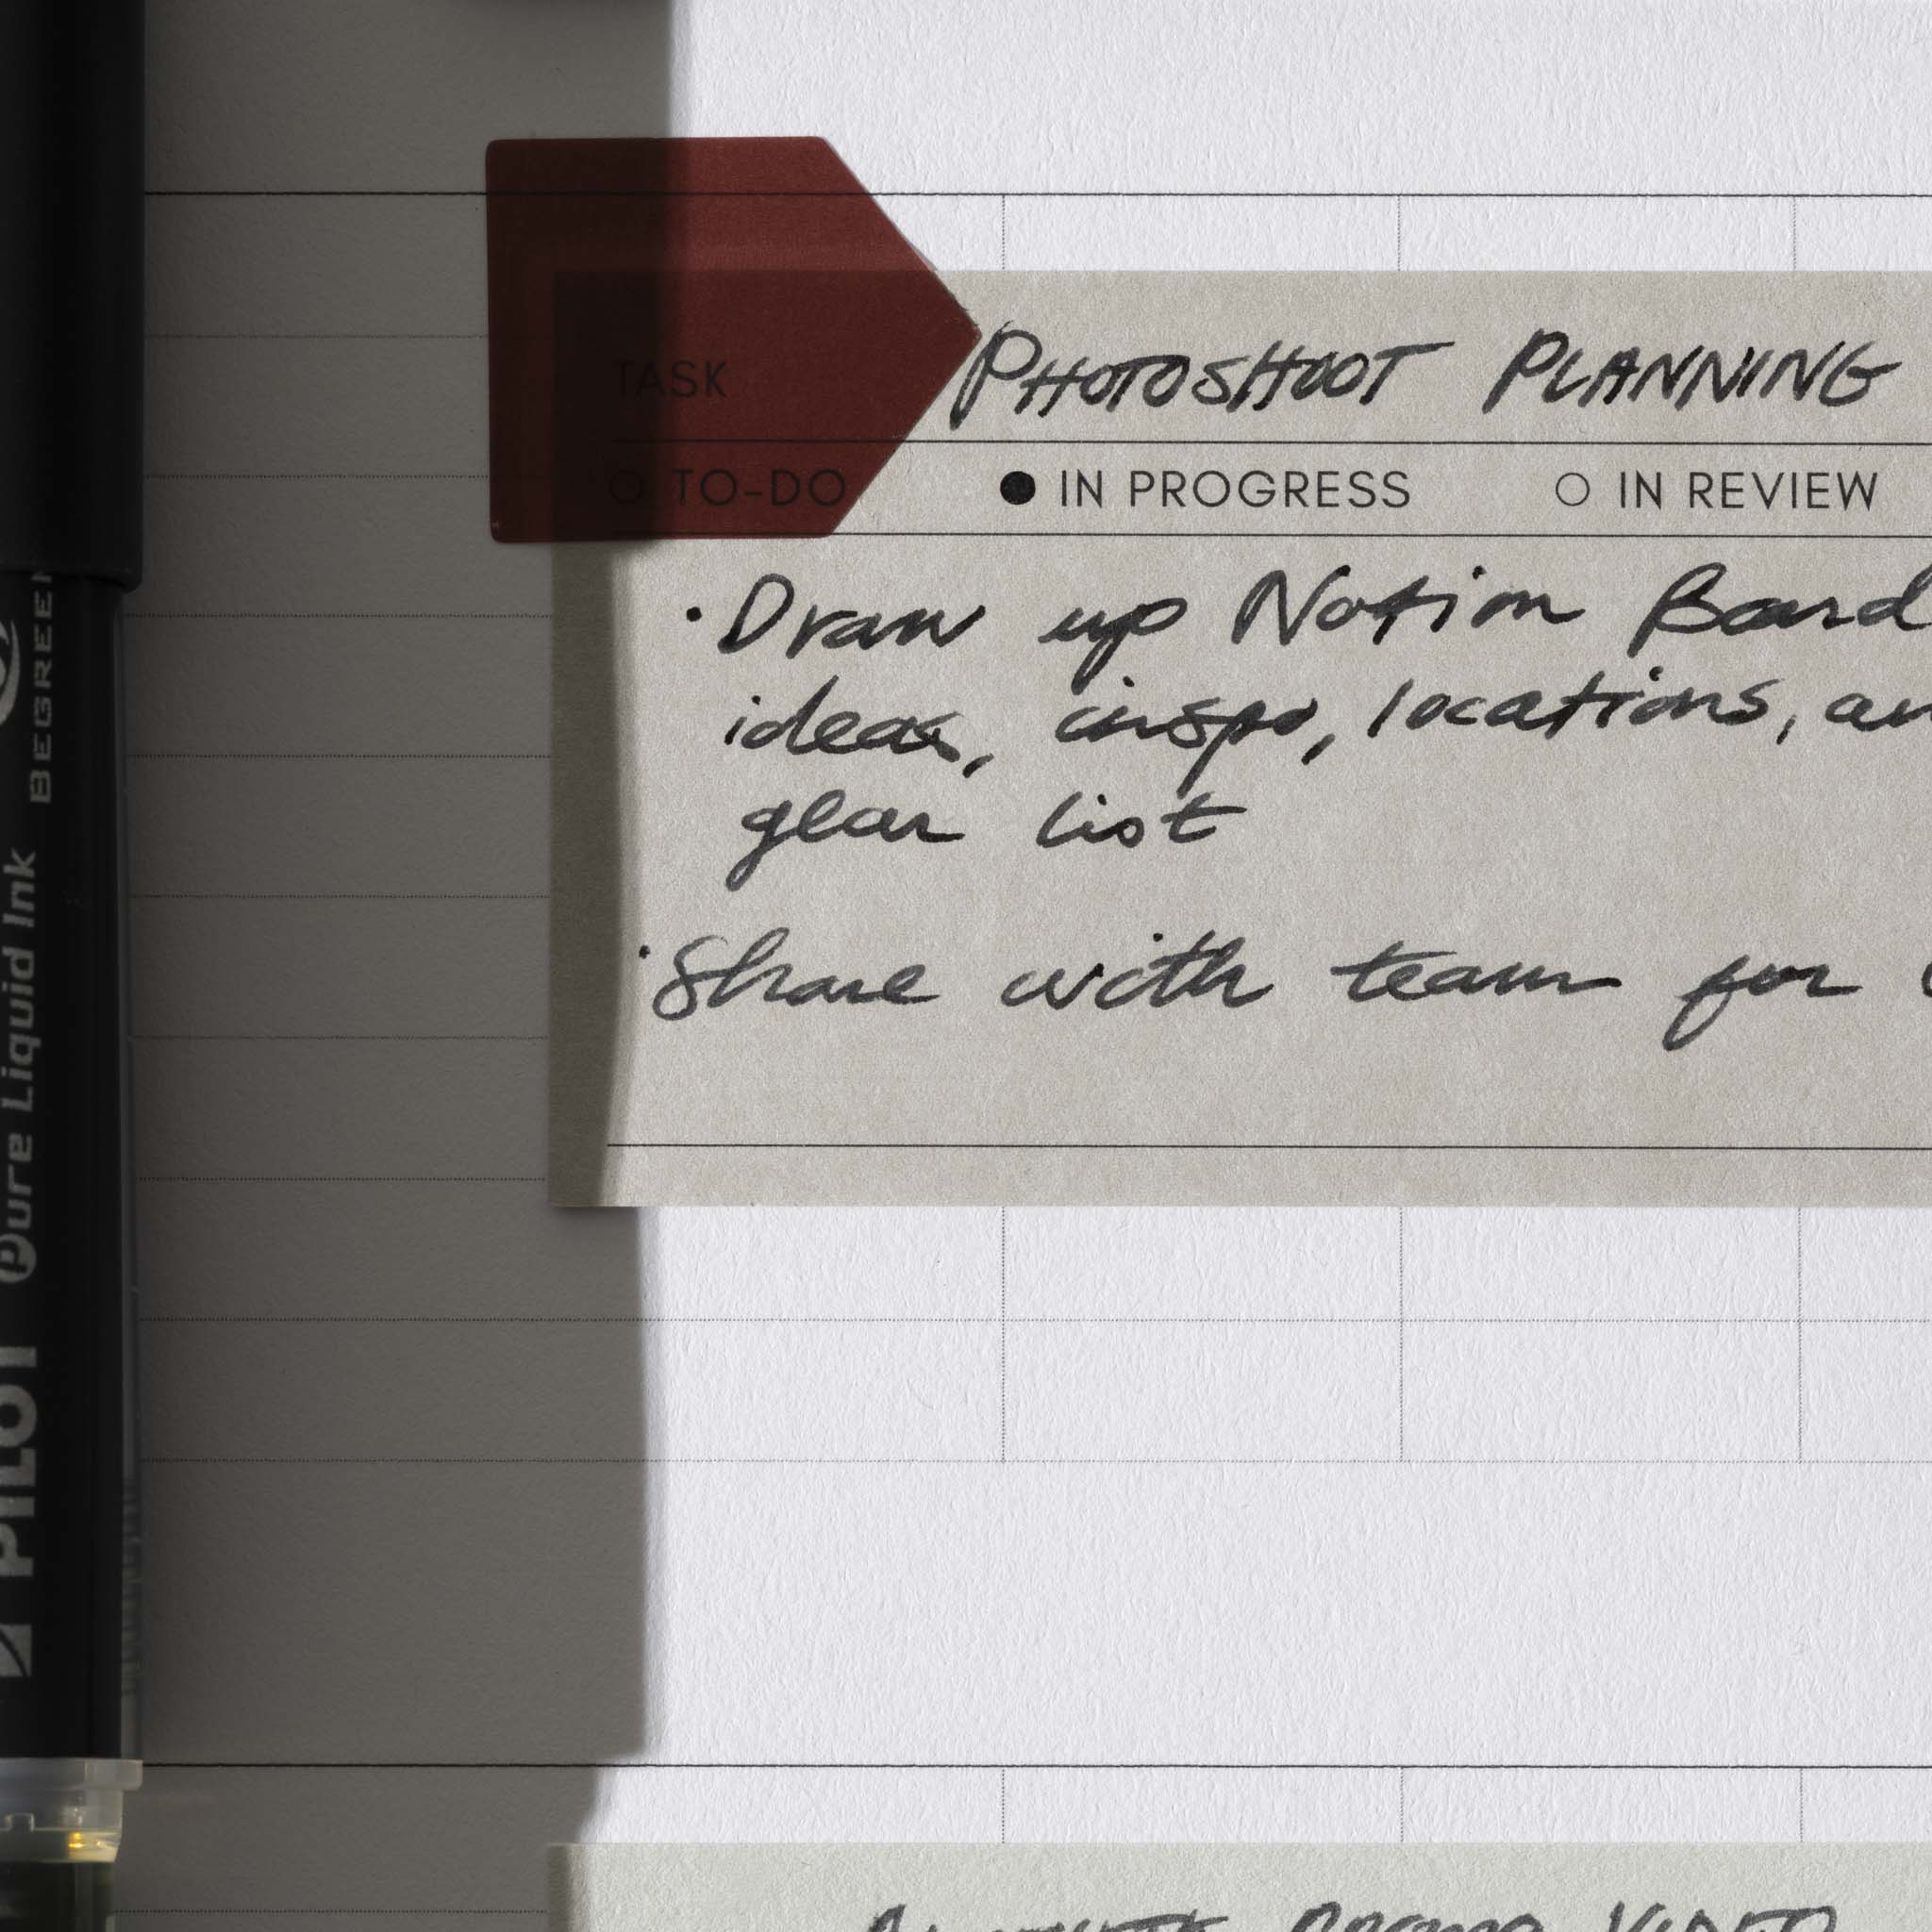 TASK PHOTOSHOOT PLANNING
TO-DO IN PROGRESS IN REVIEW
· Draw up Notion Board
ideas, inspo, locations,
gear list
· Share with team for
PROMO VIDEO
PILOT Pure Liquid Ink BEGREEN